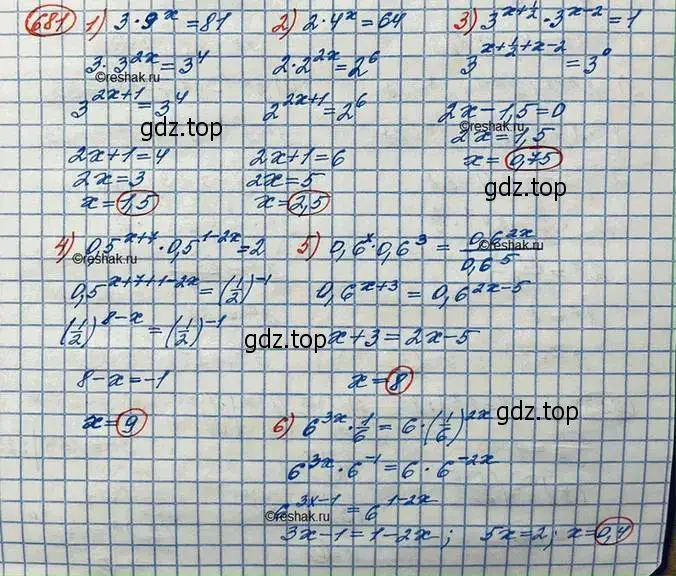 681 1) 3·9^x=81
3·3^{2x}=3^4
©reshak.ru
3^{2x+1}=3^4
gdz.top
2x+1=4
2x=3
x=1,5
2) 2·4^x=64
2·2^{2x}=2^6
©reshak.ru
2^{2x+1}=2^6
2x+1=6
2x=5
x=2,5
3) 3^{x+\frac{1}{2}}·3^{x-2}=1
3^{x+\frac{1}{2}+x-2}=3^0
2x-1,5=0
©reshak.ru
2x=1,5
x=0,75
gdz.top
4) 0,5^{x+7}·0,5^{1-2x}=2
©reshak.ru
0,5^{x+7+1-2x}=(\frac{1}{2})^{-1}
(\frac{1}{2})^{8-x}=(\frac{1}{2})^{-1}
8-x=-1
x=9
5) 0,6^x·0,6^3=\frac{0,6^{2x}}{0,6^5}
©reshak.ru
0,6^{x+3}=0,6^{2x-5}
gdz.top
x+3=2x-5
x=8
6) 6^{3x}·\frac{1}{6}=6·(\frac{1}{6})^{2x}
gdz.top
6^{3x}·6^{-1}=6·6^{-2x}
6^{3x-1}=6^{1-2x}
©reshak.ru
3x-1=1-2x; 5x=2; x=0,4
gdz.top